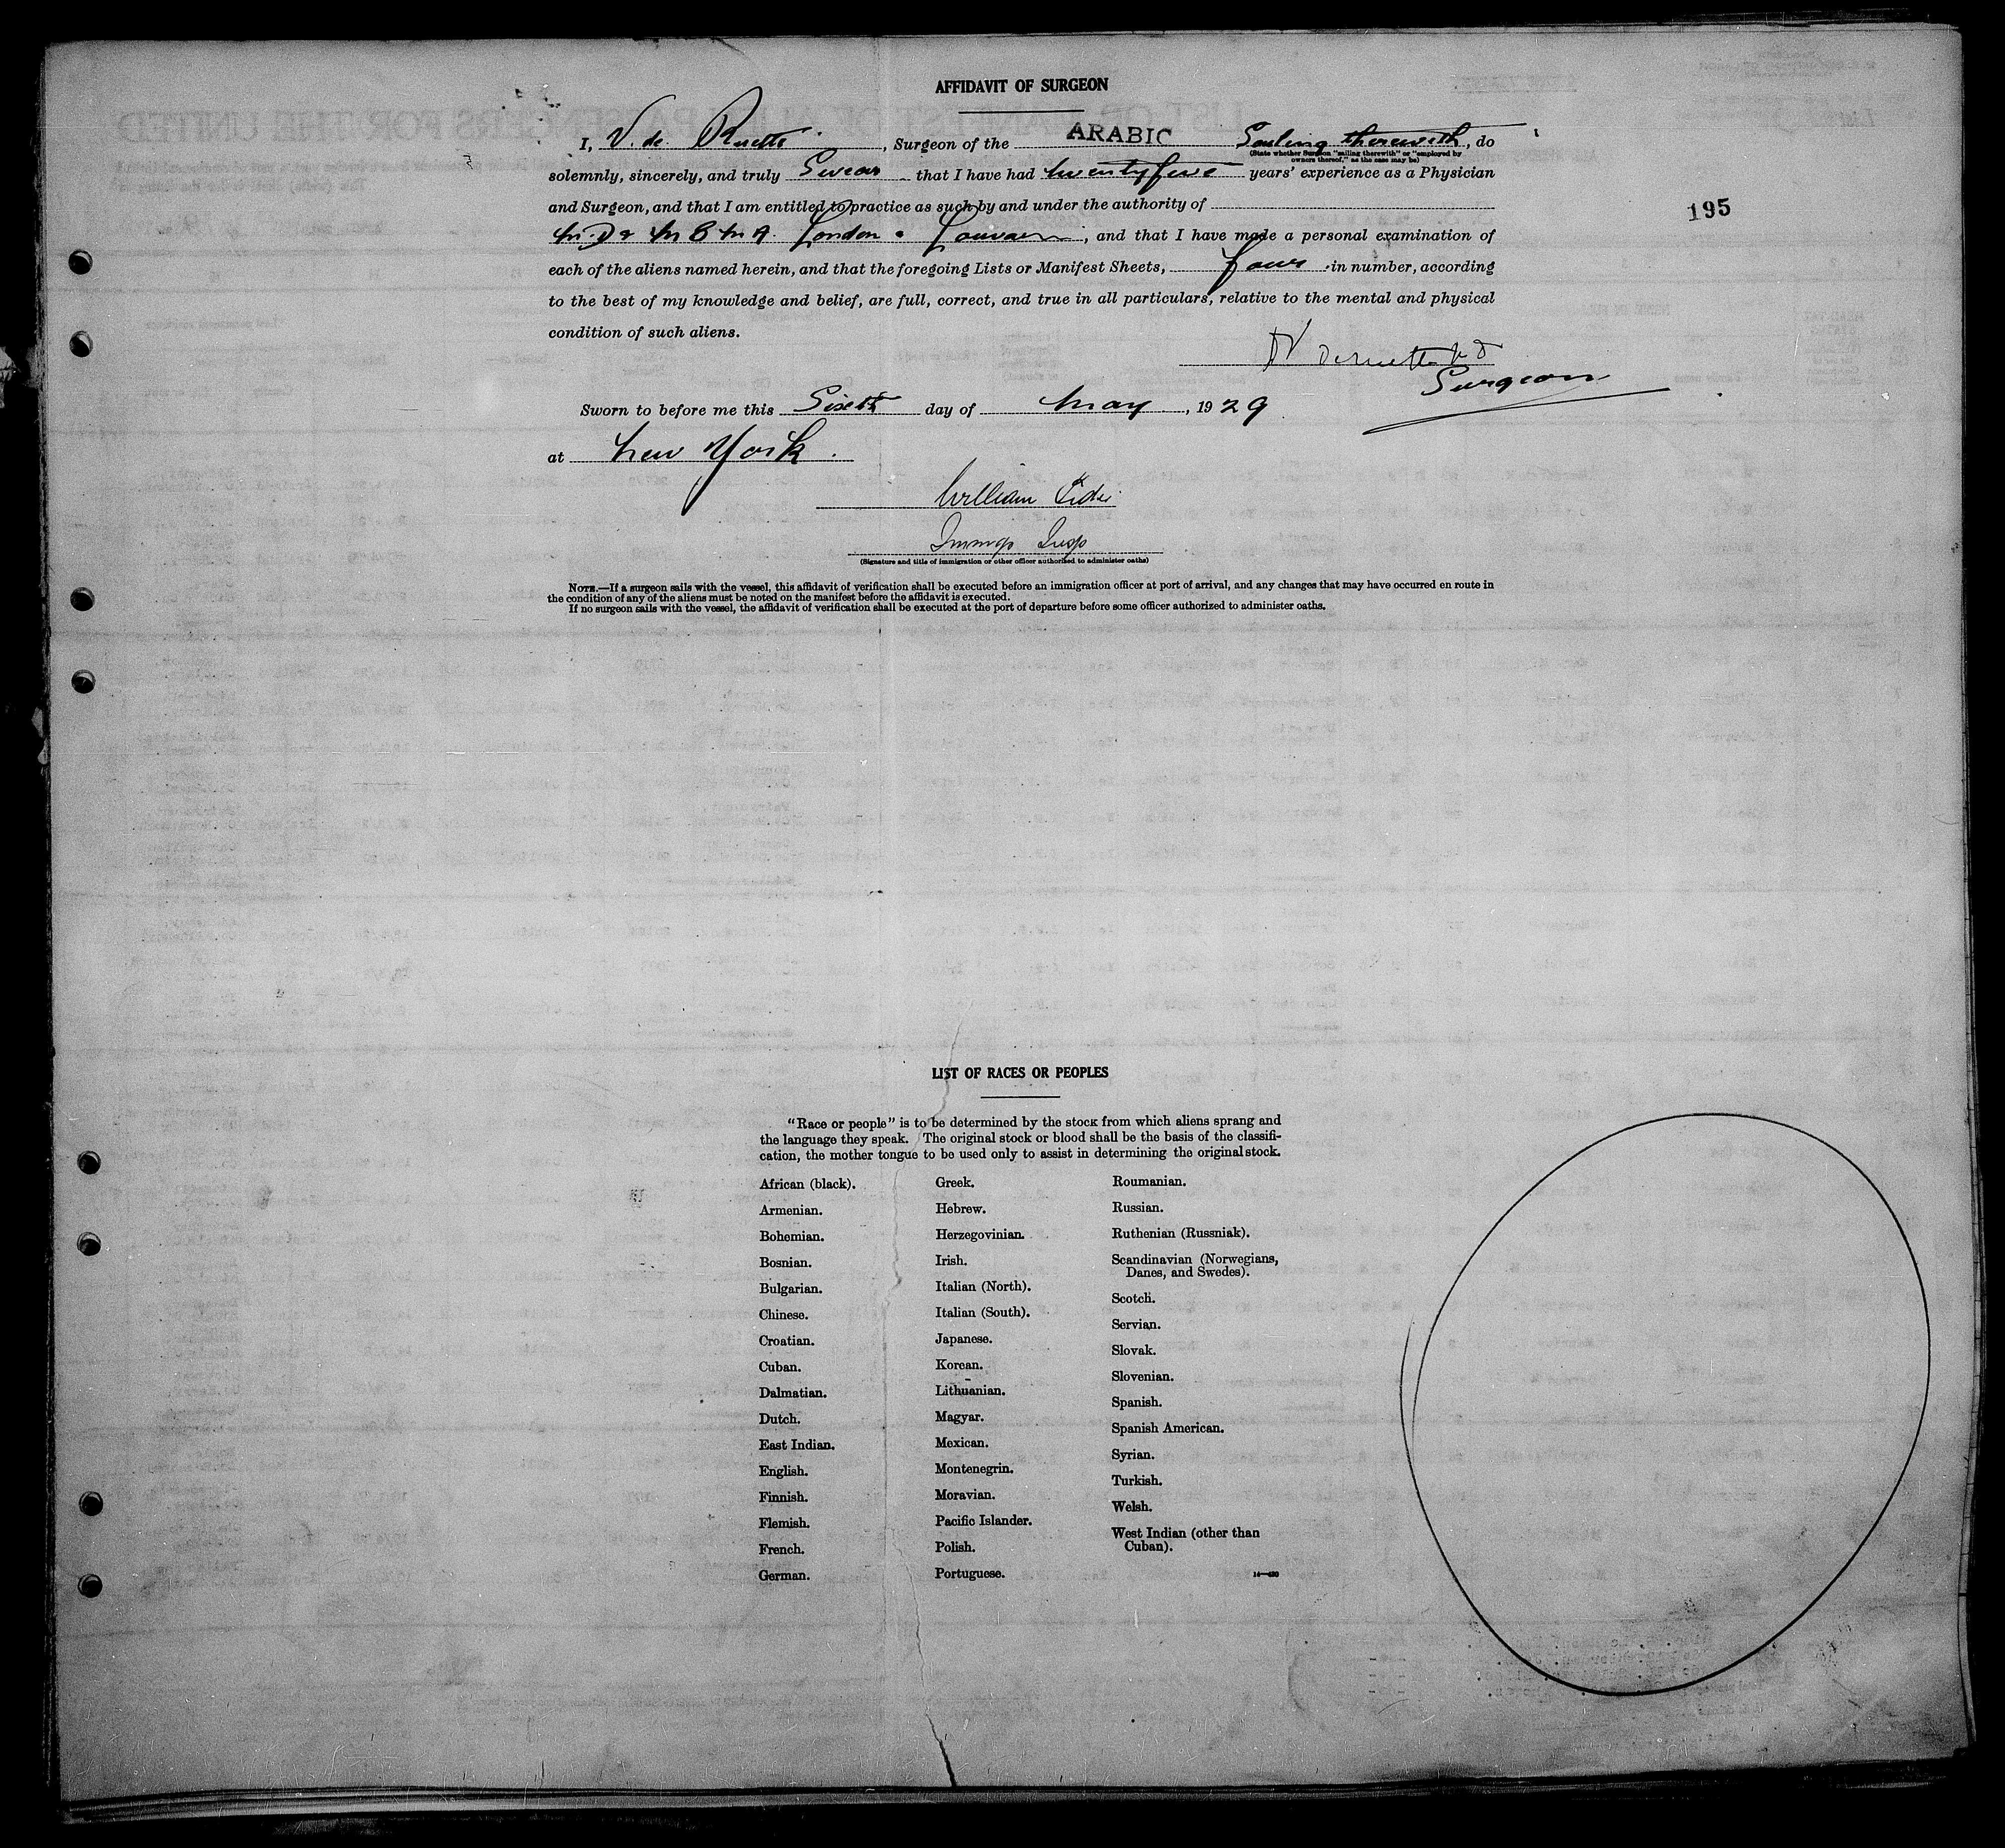 AFFIDAVIT OF SURGEON
I, V. de Ruette, Surgeon of the ARABIC Sailing therewith, do
(State whether Surgeon "sailing therewith" or "employed by
owners thereof," as the case may be)
solemnly, sincerely, and truly Swear that I have had twenty five years' experience as a Physician
and Surgeon, and that I am entitled to practice as such by and under the authority of
London Louvain, and that I have made a personal examination of
each of the aliens named herein, and that the foregoing Lists or Manifest Sheets, four in number, according
to the best of my knowledge and belief, are full, correct, and true in all particulars, relative to the mental and physical
condition of such aliens.
195
Surgeon
Sworn to before me this Sixth day of May, 1929
at New York.
William
Immgr Insp
(Signature and title of immigration or other officer authorized to administer oaths)
NOTE.—If a surgeon sails with the vessel, this affidavit of verification shall be executed before an immigration officer at port of arrival, and any changes that may have occurred en route in
the condition of any of the aliens must be noted on the manifest before the affidavit is executed.
If no surgeon sails with the vessel, the affidavit of verification shall be executed at the port of departure before some officer authorized to administer oaths.
LIST OF RACES OR PEOPLES
"Race or people" is to be determined by the stock from which aliens sprang and
the language they speak. The original stock or blood shall be the basis of the classifi-
cation, the mother tongue to be used only to assist in determining the original stock.
African (black).
Armenian.
Bohemian.
Bosnian.
Bulgarian.
Chinese.
Croatian.
Cuban.
Dalmatian.
Dutch.
East Indian.
English.
Finnish.
Flemish.
French.
German.
Greek.
Hebrew.
Herzegovinian.
Irish.
Italian (North).
Italian (South).
Japanese.
Korean.
Lithuanian.
Magyar.
Mexican.
Montenegrin.
Moravian.
Pacific Islander.
Polish.
Portuguese.
Roumanian.
Russian.
Ruthenian (Russniak).
Scandinavian (Norwegians,
Danes, and Swedes).
Scotch.
Servian.
Slovak.
Slovenian.
Spanish.
Spanish American.
Syrian.
Turkish.
Welsh.
West Indian (other than
Cuban).